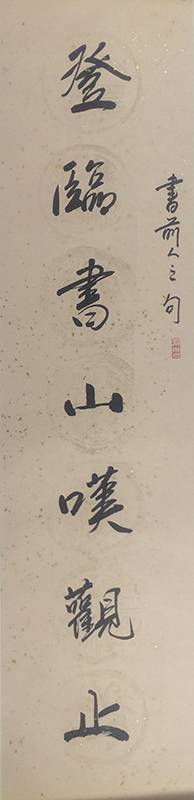 書前人之句
登臨書山嘆觀止